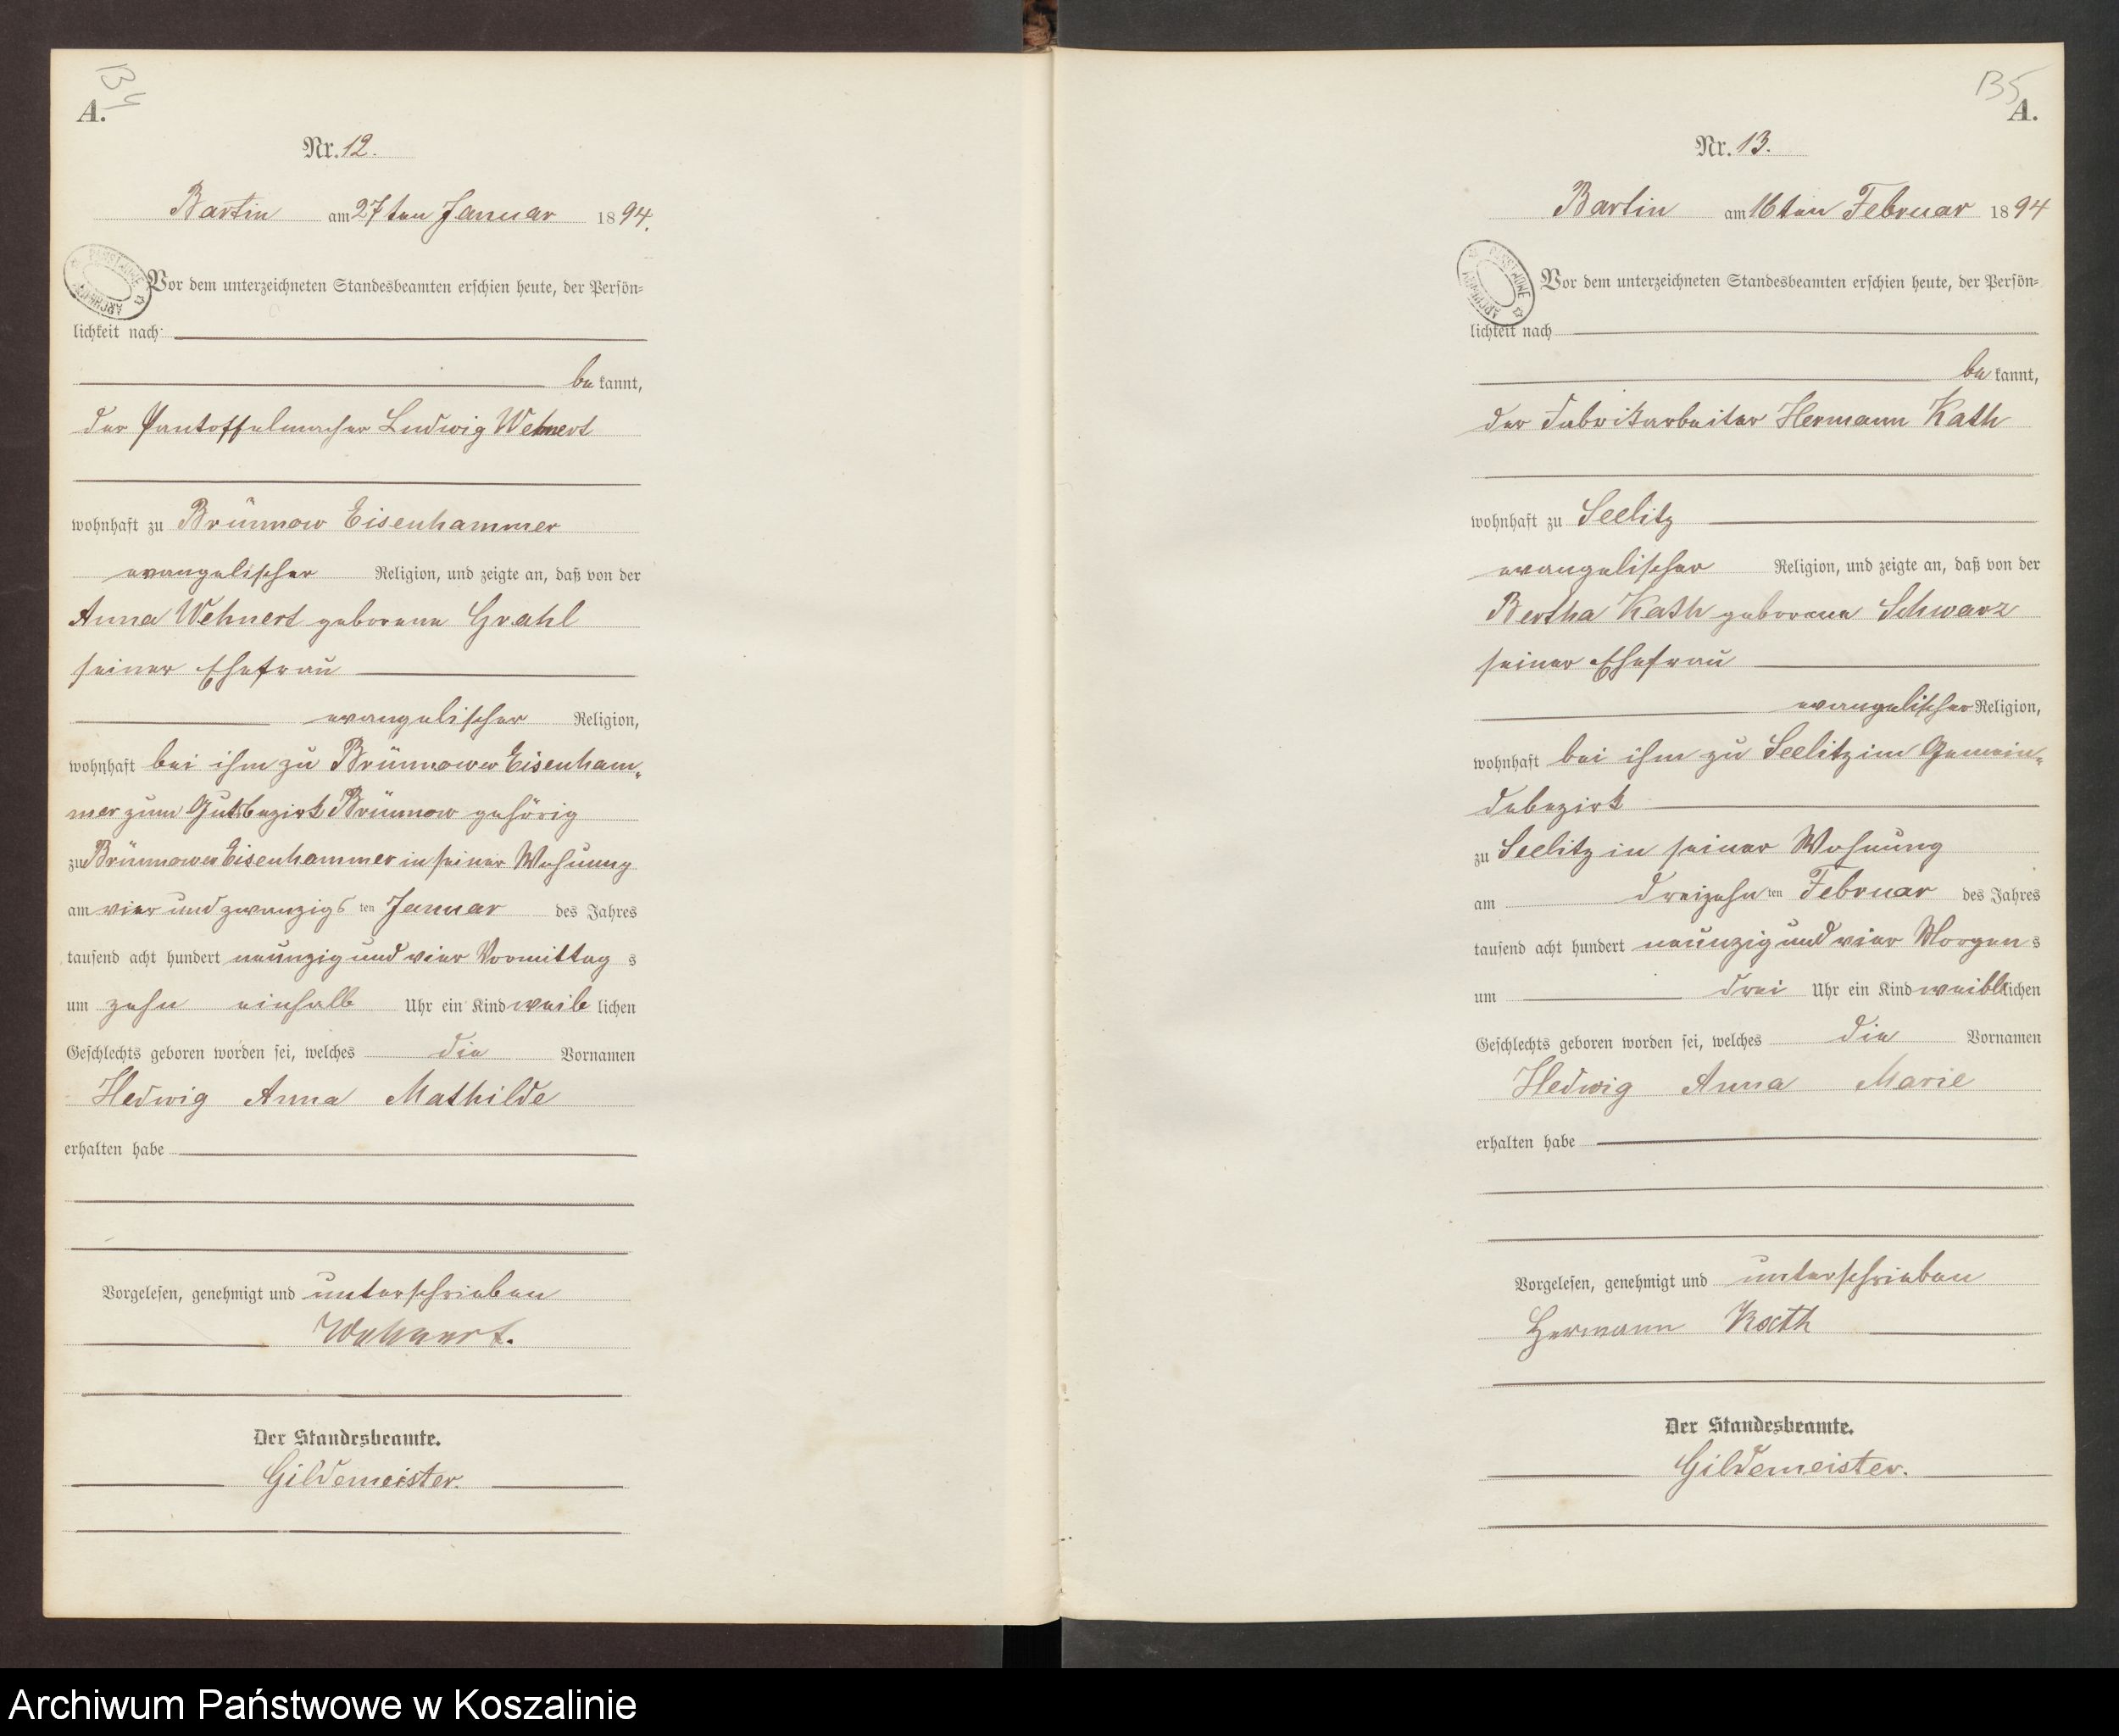 B4
A.
Nr. 12.
Bartin am 27ten Januar 1894.
Vor dem unterzeichneten Standesbeamten erschien heute, der Persön=
lichkeit nach
be kannt,
der Pantoffelmacher Ludwig Wehnert
wohnhaft zu Brünnow Eisenhammer
evangelischer Religion, und zeigte an, daß von der
Anna Wehnert geborene Grahl
seiner Ehefrau
evangelischer Religion,
wohnhaft bei ihm zu Brünnower Eisenham„
mer zum Gutsbezirk Brünnow gehörig
zu Brünnower Eisenhammer in seiner Wohnung
am vier und zwanzigs ten Januar des Jahres
tausend acht hundert neunzig und vier Vormittag s
um zehn einhalb Uhr ein Kind weib lichen
Geschlechts geboren worden sei, welches die Vornamen
Hedwig Anna Mathilde
erhalten habe
Vorgelesen, genehmigt und unterschrieben
Wehnert.
Der Standesbeamte.
Gildemeister.
B5
A.
Nr. 13.
Bartin am 16ten Februar 1894
Vor dem unterzeichneten Standesbeamten erschien heute, der Persön=
lichkeit nach
be kannt,
der Fabrikarbeiter Hermann Kath
wohnhaft zu Seelitz
evangelischer Religion, und zeigte an, daß von der
Bertha Kath geborene Schwarz
seiner Ehefrau
evangelischer Religion,
wohnhaft bei ihm zu Seelitz im Gemein„
debezirk
zu Seelitz in seiner Wohnung
am dreizehn ten Februar des Jahres
tausend acht hundert neunzig und vier Morgen s
um drei Uhr ein Kind weibl lichen
Geschlechts geboren worden sei, welches die Vornamen
Hedwig Anna Marie
erhalten habe
Vorgelesen, genehmigt und unterschrieben
Hermann Kath
Der Standesbeamte.
Gildemeister.
Archiwum Państwowe w Koszalinie